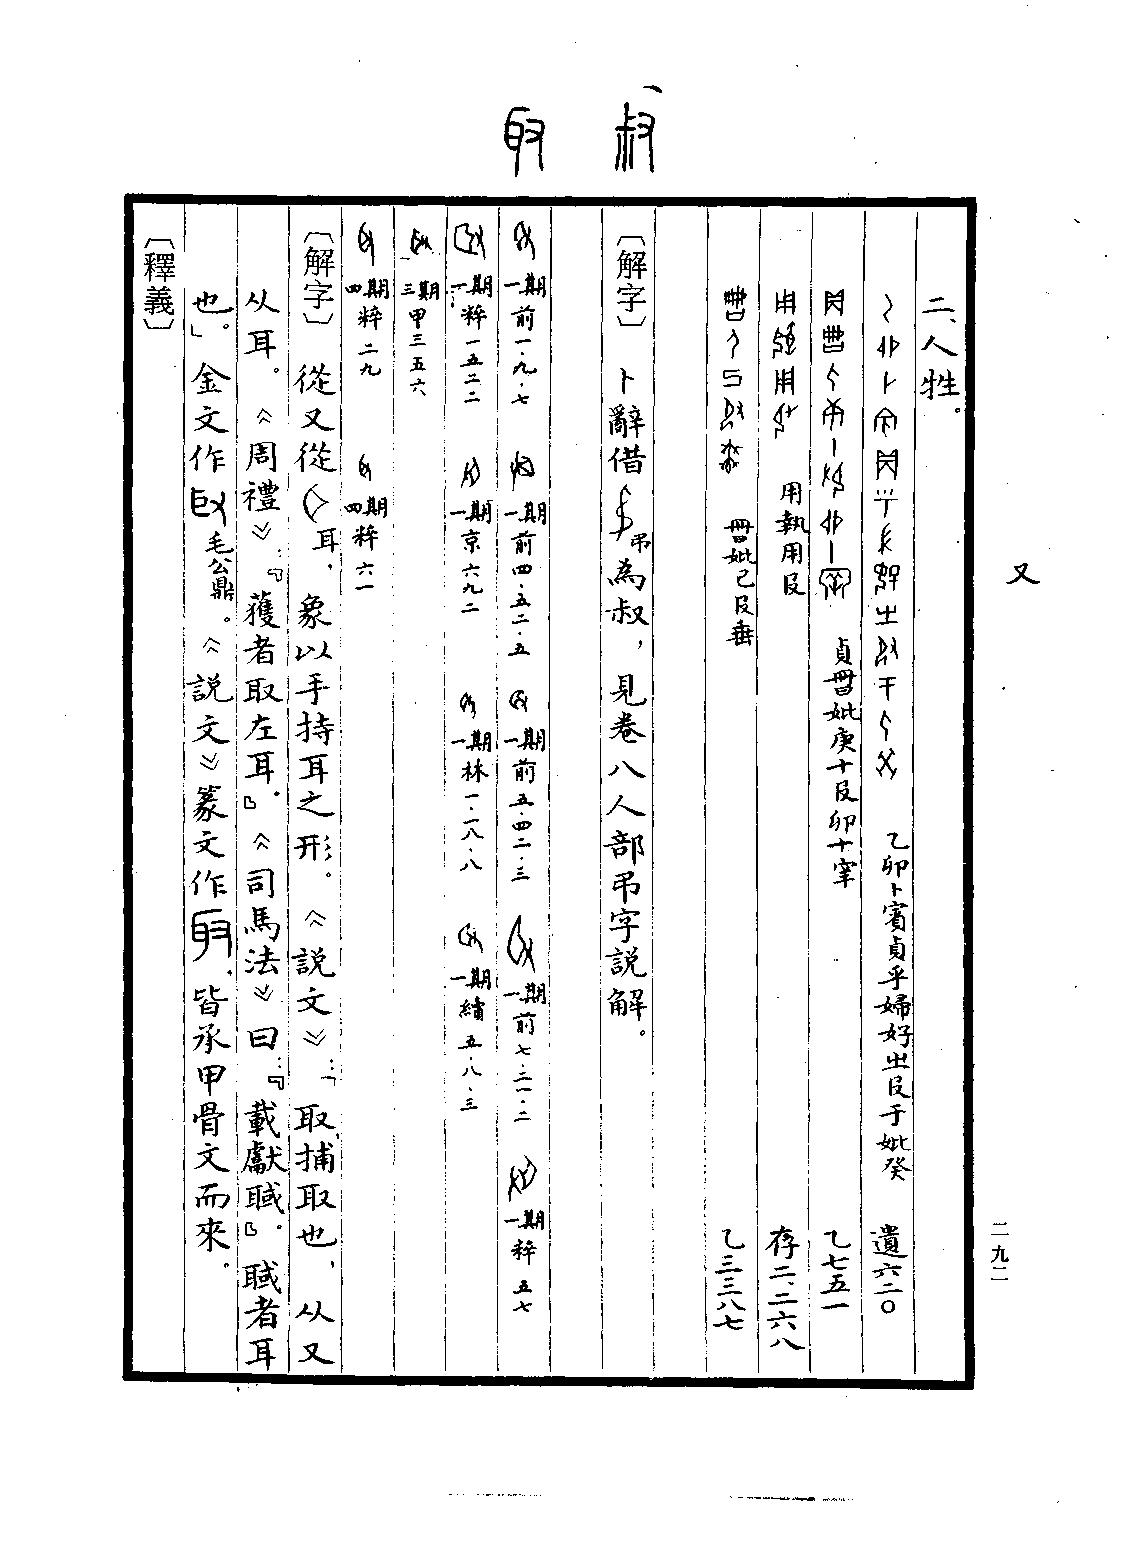 叔
取
又
二九二
二、人牲。
乙卯卜賓貞乎婦好㞢𠬝于妣癸 遺六二〇
貞𠕋妣庚十𠬝卯十宰 乙七五一
用執用𠬝 存二、二六八
𠕋妣己𠬝垂 乙三三八七
〔解字〕 卜辭借 弔為叔，見卷八人部弔字說解。
一期前一·九·七 一期前四·五二·五 一期前五·四二·三 一期前七·二一·二 一期粹五七
一期粹一五二二 一期京六九二 一期林一·二八·八 一期續五·八·三
三期甲三五六
四期粹二九 四期粹六一
〔解字〕 從又從 耳，象以手持耳之形。《說文》：「取捕取也，从又
从耳。《周禮》：『獲者取左耳。』《司馬法》曰：『載獻聝』。聝者耳
也。」金文作 毛公鼎。《說文》篆文作 ，皆承甲骨文而來。
〔釋義〕